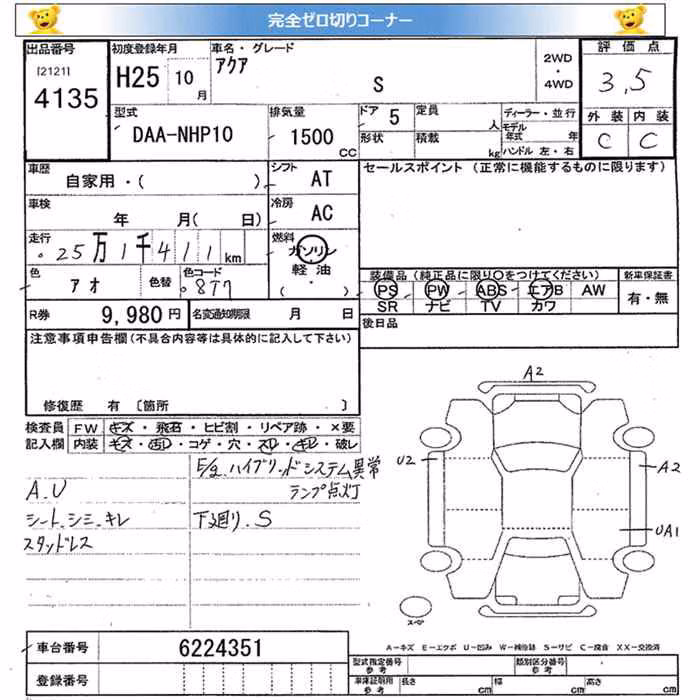 完全ゼロ切りコーナー
出品番号 初度登録年月 車名・グレード 2WD・4WD 評価点
[2121] 4135 H25 10月 アクア S 3,5
型式 排気量 ドア 5 定員 人 ディーラー・並行 外装 内装
DAA-NHP10 1500CC 形状 積載 kg モデル年式 年 C C
ハンドル 左・右
車歴 シフト セールスポイント (正常に機能するものに限ります)
自家用・( ) AT
車検 冷房
年 月( 日) AC
走行 燃料
25万1千411km ガソリン
軽油・( )
色 アオ 色替 色コード 8T7
装備品(純正品に限り○をつけてください) 新車保証書
PS PW ABS エアB AW 有・無
SR ナビ TV カワ
R券 9,980円 名変通知期限 月 日 後日品
注意事項申告欄(不具合内容等は具体的に記入して下さい)
修復歴 有 [箇所 ]
検査員 FW キズ・飛石・ヒビ割・リペア跡・×要
記入欄 内装 キズ・汚れ・コゲ・穴・スレ・キレ・破レ
E/g.ハイブリッドシステム異常
ランプ点灯
A.U
シート.シミ.キレ 下廻り.S
スタッドレス
A2
U2 A2
UA1
スペア
A-キズ E-エクボ U-凹み W-補修跡 S-サビ C-腐食 XX-交換済
車台番号 6224351
登録番号
型式指定番号 参考 類別区分番号 参考
車庫証明用 参考 長さ cm 幅 cm 高さ cm